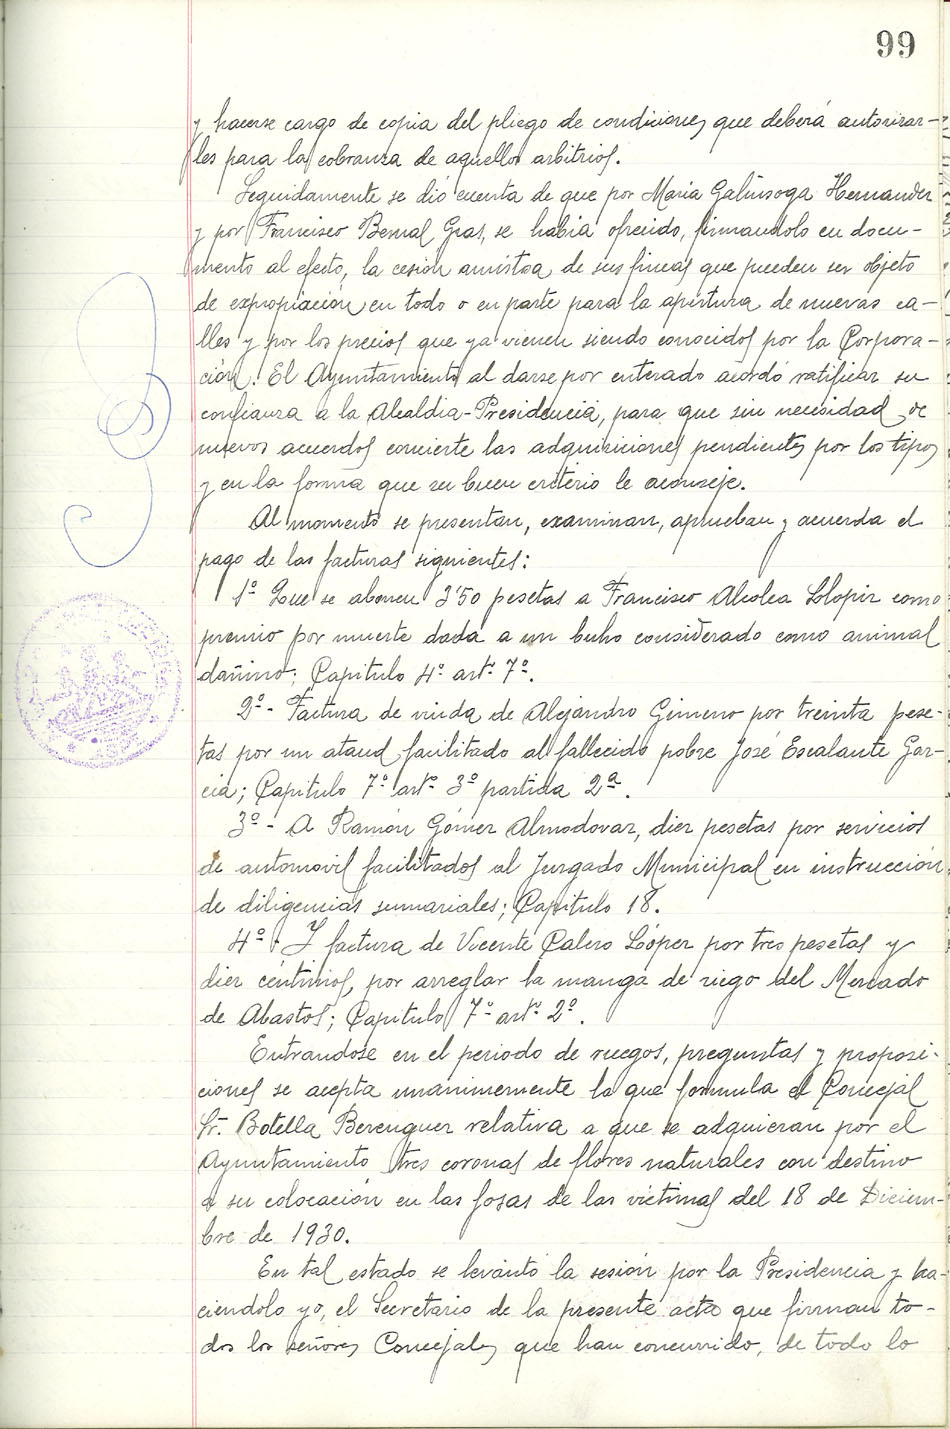 99
y hacerse cargo de copia del pliego de condiciones que deberá autorizar-
les para la cobranza de aquellos arbitrios.
Seguidamente se dió cuenta de que por Maria Galinsoga Hernandez
y por Francisco Bernal Gras, se habia ofrecido, firmandolo en docu-
mento al efecto, la cesión amistosa de sus fincas que pueden ser objeto
de expropiación en todo o en parte para la apertura de nuevas ca-
lles y por los precios que ya vienen siendo conocidos por la Corpora-
ción. El Ayuntamiento al darse por enterado acordó ratificar su
confianza a la Alcaldia-Presidencia, para que sin necesidad de
nuevos acuerdos concierte las adquisiciones pendientes por los tipos
y en la forma que su buen criterio le aconseje.
Al momento se presentan, examinan, aprueban y acuerda el
pago de las facturas siguientes:
1º Que se abonen 3'50 pesetas a Francisco Alcolea Llopiz como
premio por muerte dada a un buho considerado como animal
dañino; Capitulo 4º artº 7º.
2º- Factura de viuda de Alejandro Gimeno por treinta pese-
tas por un ataud facilitado al fallecido pobre José Escalante Gar-
cia; Capitulo 7º artº 3º partida 2ª.
3º- A Ramón Gómez Almodovar, diez pesetas por servicios
de automovil facilitados al Juzgado Municipal en instrucción
de diligencias sumariales; Capitulo 18.
4º Y factura de Vicente Calero López por tres pesetas y
diez céntimos, por arreglar la manga de riego del Mercado
de Abastos; Capitulo 7º artº 2º.
Entrandose en el periodo de ruegos, preguntas y proposi-
ciones se acepta unanimemente la que formula el Concejal
Sr. Botella Berenguer relativa a que se adquieran por el
Ayuntamiento tres coronas de flores naturales con destino
a su colocación en las fosas de las victimas del 18 de Diciem-
bre de 1930.
En tal estado se levantó la sesión por la Presidencia y ha-
ciendolo yo, el Secretario de la presente acta que firman to-
dos los señores Concejales que han concurrido, de todo lo